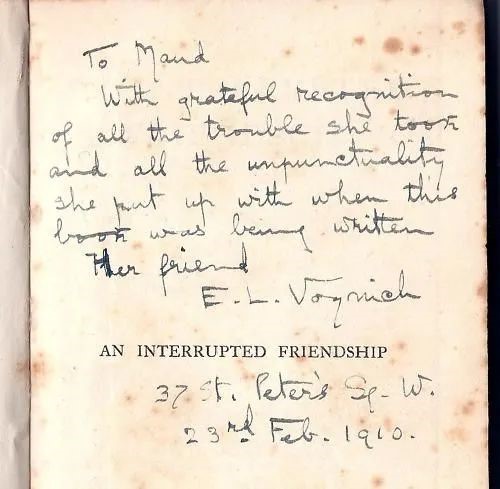 To Maud
With grateful recognition
of all the trouble she took
and all the unpunctuality
she put up with when this
book was being written
Her friend
E. L. Voynich
AN INTERRUPTED FRIENDSHIP
37 St. Peter's Sq. W.
23rd Feb. 1910.